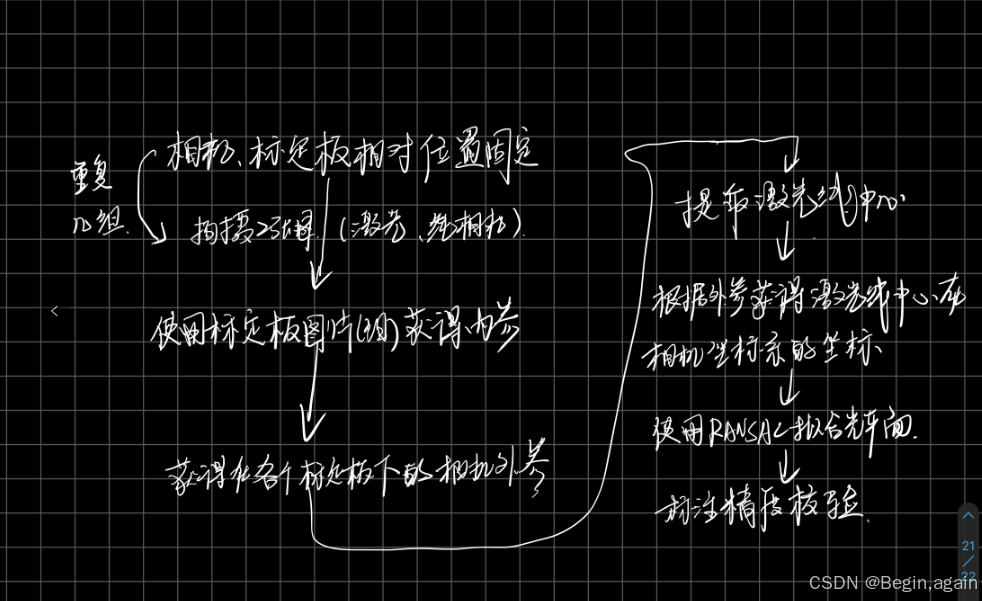 相机、标定板相对位置固定
重复
n组.
拍摄2张 (激光、纯相机).
使用标定板图片(组)获得内参
获得在各个标定板下的相机外参
提取激光线中心
根据外参获得激光线中心在
相机坐标系的坐标
使用RANSAC拟合光平面.
标注精度校验.
21
22
CSDN @Begin,again